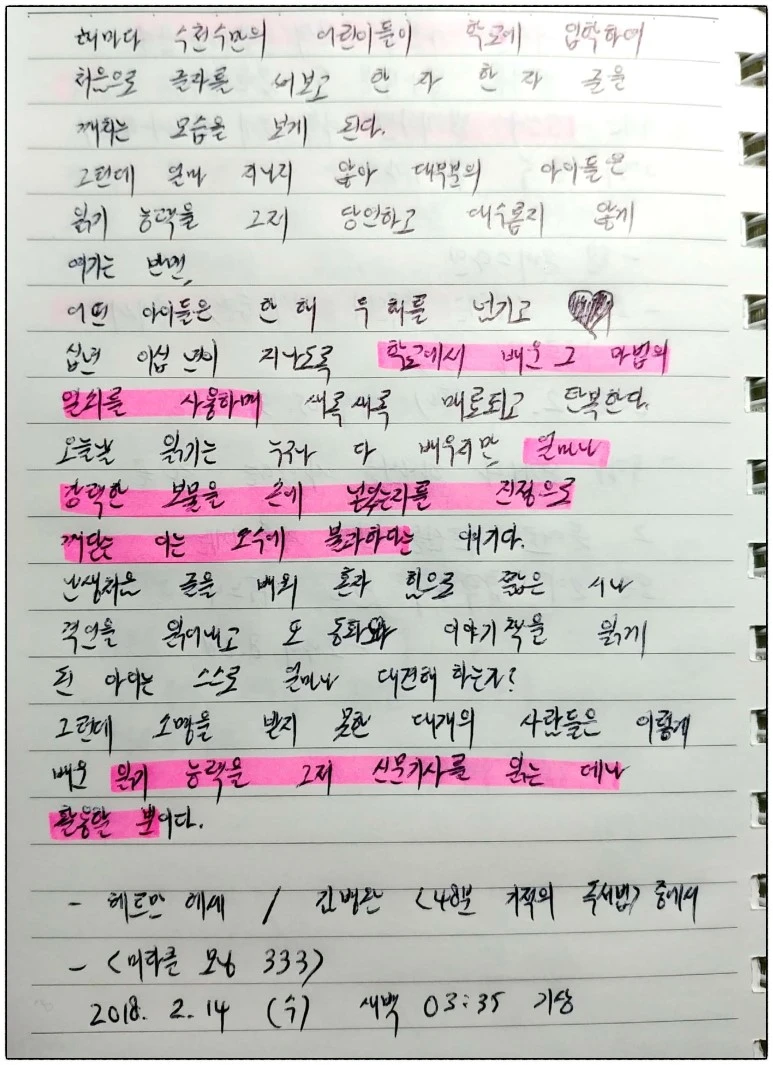 해마다 수천수만의 어린이들이 학교에 입학하여
처음으로 글자를 써보고 한 자 한 자 글을
깨치는 모습을 보게 된다.
그런데 얼마 지나지 않아 대부분의 아이들은
읽기 능력을 그저 당연하고 대수롭지 않게
여기는 반면,
어떤 아이들은 한 해 두 해를 넘기고
십년 이십 년이 지나도록 학교에서 배운 그 마법의
열쇠를 사용하며 새록새록 매료되고 탄복한다.
오늘날 읽기는 누구나 다 배우지만 얼마나
강력한 보물을 손에 넣었는지를 진정으로
깨닫는 이는 소수에 불과하다는 얘기다.
난생처음 글을 배워 혼자 힘으로 짧은 시나
격언을 읽어내고 또 동화와 이야기책을 읽게
된 아이는 스스로 얼마나 대견해 하는가?
그런데 소명을 받지 못한 대개의 사람들은 이렇게
배운 읽기 능력을 그저 신문기사를 읽는 데나
활용할 뿐이다.
- 헤르만 헤세 / 김병완 <48분 기적의 독서법> 중에서
- <미라클 모닝 333>
2018. 2. 14 (수) 새벽 03:35 기상